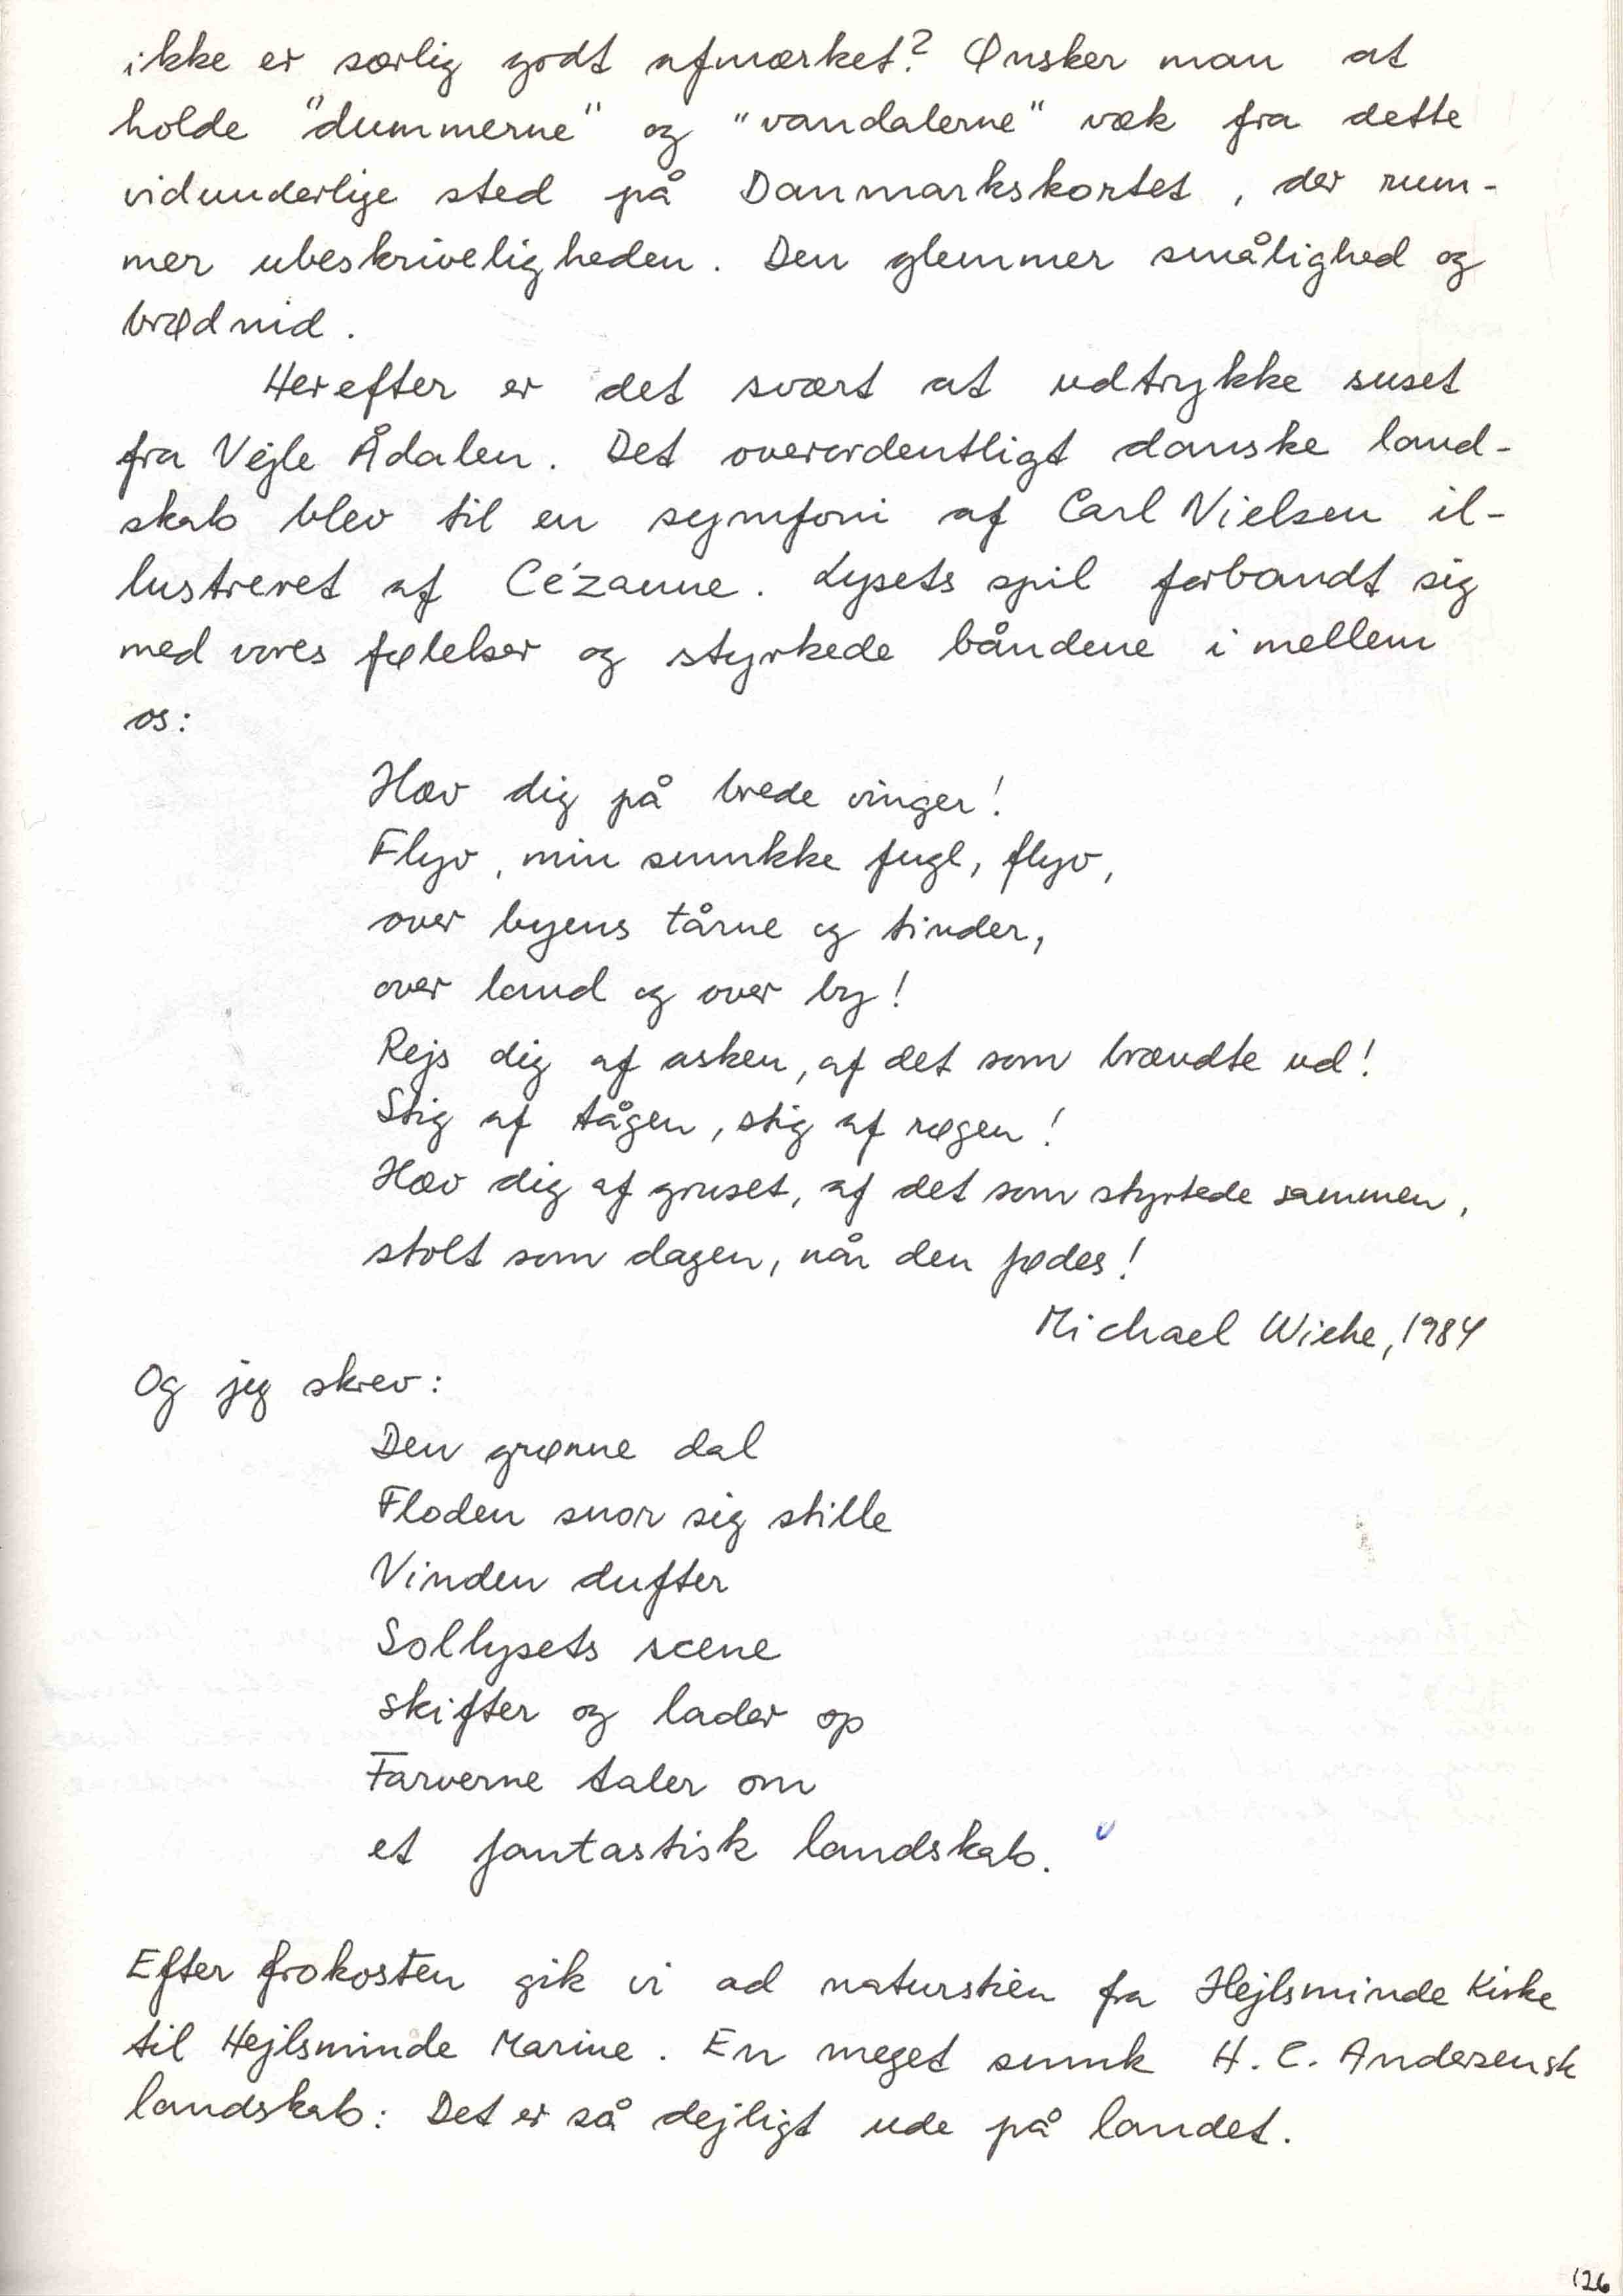 ikke er særlig godt afmærket? Ønsker man at
holde "dummerne" og "vandalerne" væk fra dette
vidunderlige sted på Danmarkskortet, der rum-
mer ubeskriveligheden. Den glemmer smålighed og
brødnid.
Herefter er det svært at udtrykke suset
fra Vejle Ådalen. Det overordentligt danske land-
skab blev til en symfoni af Carl Nielsen il-
lustreret af Cézanne. Lysets spil forbandt sig
med vores følelser og styrkede båndene i mellem
os:
Hæv dig på brede vinger!
Flyv, min smukke fugl, flyv,
over byens tårne og tinder,
over land og over by!
Rejs dig af asken, af det som brændte ud!
Stig af tågen, stig af røgen!
Hæv dig af gruset, af det som styrtede sammen,
stolt som dagen, når den fødes!
Michael Wiehe, 1984
Og jeg skrev:
Den grønne dal
Floden snor sig stille
Vinden dufter
Sollysets scene
skifter og lader op
Farverne taler om
et fantastisk landskab.
Efter frokosten gik vi ad naturstien fra Hejlsminde Kirke
til Hejlsminde Marine. En meget smuk H. C. Andersensk
landskab: Det er så dejligt ude på landet.
126